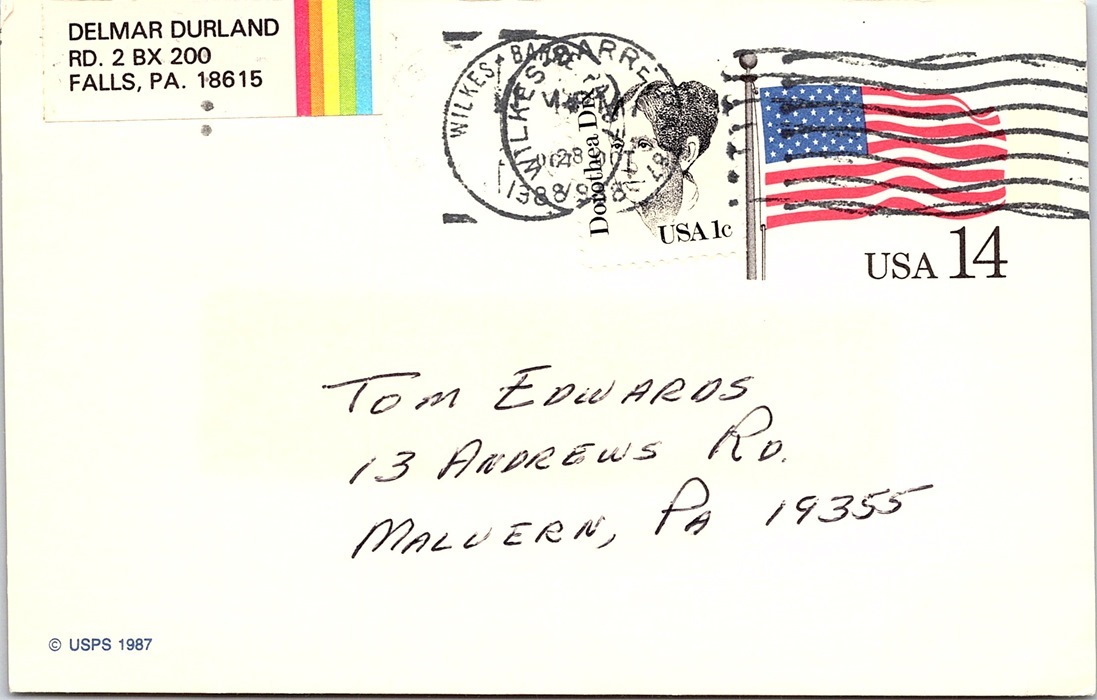 DELMAR DURLAND
RD. 2 BX 200
FALLS, PA. 18615
WILKES-BARRE
WILKES BARRE
28 OCT
Dorothea Dix
USA 1c
USA 14
TOM EDWARDS
13 ANDREWS RD.
MALVERN, PA 19355
© USPS 1987